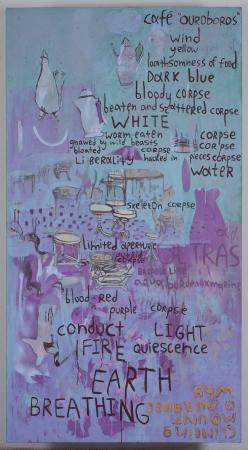 café "OUROBOROS"
wind
yellow
loathsomeness of food
DARK blue
bloody corpse
beaten and scattered corpse
WHITE
worm eaten corpse
gnawed by wild beasts corpse
bloated corpse
Liberality hacked in pieces corpse
water
skeleton corpse
limited aperture
putrid
corpse
blood-red
purple corpse
conduct LIGHT
FIRE quiescence
EARTH
BREATHING
CLIMBING
MOUNT